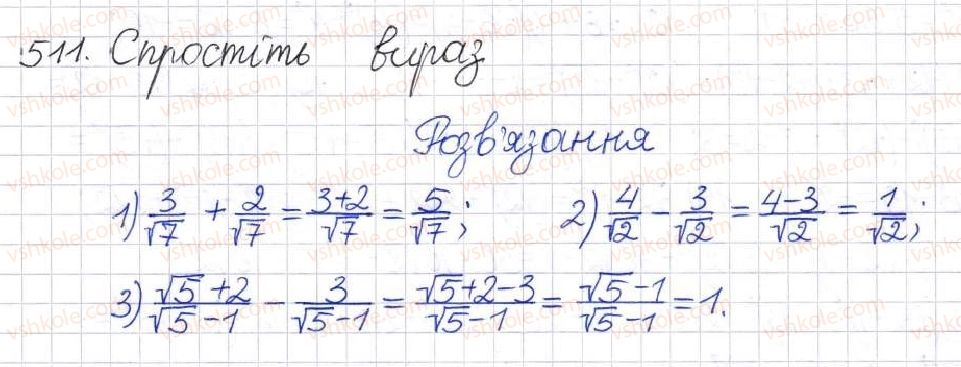 511. Спростіть вираз
Розв'язання
1) 3/√7 + 2/√7 = (3+2)/√7 = 5/√7; 2) 4/√2 − 3/√2 = (4−3)/√2 = 1/√2;
3) (√5+2)/(√5−1) − 3/(√5−1) = (√5+2−3)/(√5−1) = (√5−1)/(√5−1) = 1.
vshkole.com